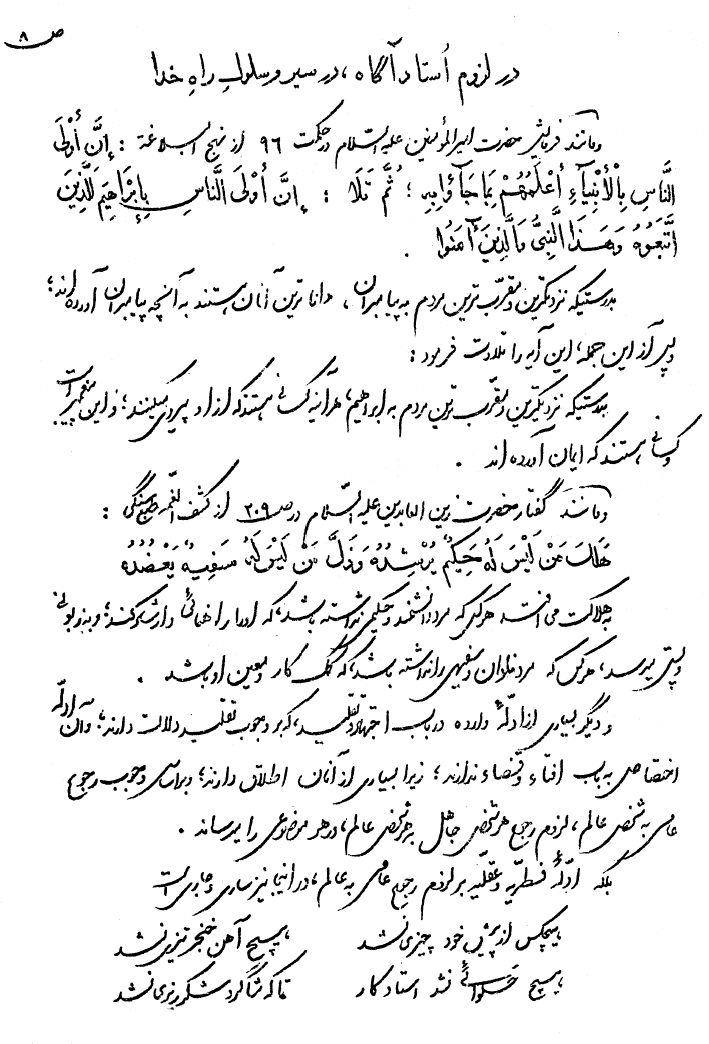 ص ۸
در لزوم اُستاد آگاه، در سیر و سلوکِ راهِ خدا
و مانند فرمایش حضرت امیرالمؤمنین علیه السّلام در حکمت ۹۶ از نهج البلاغة : إنَّ أَوْلَی
النَّاسِ بِالْأَنْبِیَآءِ أَعْلَمُهُمْ بِمَا جَآؤُا بِهِ ؛ ثُمَّ تَلَا : إِنَّ أَوْلَی النَّاسِ بِإِبْرَاهِیمَ لَلَّذِینَ
اتَّبَعُوهُ وَ هَذَا النَّبِیُّ وَالَّذِینَ آمَنُوا .
بدرستیکه نزدیکترین و مقرّب ترین مردم به پیامبران، دانا ترین آنان هستند به آنچه پیامبران آورده اند؛
و پس از این جمله، این آیه را تلاوت فرمود :
بدرستیکه نزدیکترین و مقرّب ترین مردم به ابراهیم، هر آینه کسانی هستند که از او پیروی میکنند؛ و این پیغمبر است
و کسانی هستند که ایمان آورده اند .
و مانند گفتار حضرت زین العابدین علیه السّلام در ص ۲۰۹ از کشف الغمّه طبع سنگی :
هَلَكَ مَنْ لَیْسَ لَهُ حَکِیمٌ یُرْشِدُهُ وَ ذَلَّ مَنْ لَیْسَ لَهُ سَفِیهٌ یَعْضُدُهُ
به هلاکت می افتد هر کس که مرد دانشمند و حکیمی نداشته باشد، که او را راهنمائی و ارشاد کند؛ و به زبونی
و پستی میرسد، هر کس که مرد ناتوان و سفیهی را نداشته باشد، که کمک کار و معین او باشد .
و دیگر بسیاری از ادلّهٔ وارده در باب اجتهاد و تقلید، که بر وجوب تقلید دلالت دارند؛ و آن ادلّه
اختصاص به باب افتاء و قضاء ندارند؛ زیرا بسیاری از آنان اطلاق دارند؛ و بر اساس وجوب رجوع
عامی به شخص عالم، لزوم رجوع هر شخص جاهل به هر شخص عالم، در هر موضوعی را میرساند .
بلکه ادلّهٔ فطریّه و عقلیّه بر لزوم رجوع عامی به عالم، در اینجا نیز ساری و جاری است
هیچکس از پیش خود چیزی نشد هیچ آهن خنجر تیزی نشد
هیچ حلوائی نشد استاد کار تا که شاگرد شکر ریزی نشد